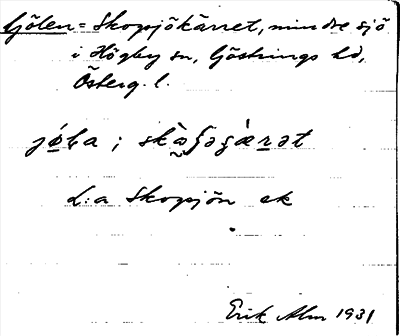 Gjölen = Skopsjökärret, mindre sjö
i Högby sn, Göstrings hd,
Österg. l.
d:a Skopsjön ek
Erik Alm 1931